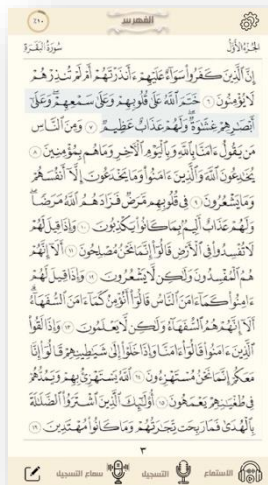 الفهرس
الجزء الأول
سورة البقرة
إِنَّ ٱلَّذِينَ كَفَرُوا۟ سَوَآءٌ عَلَيْهِمْ ءَأَنذَرْتَهُمْ أَمْ لَمْ تُنذِرْهُمْ
لَا يُؤْمِنُونَ ٦ خَتَمَ ٱللَّهُ عَلَىٰ قُلُوبِهِمْ وَعَلَىٰ سَمْعِهِمْ ۖ وَعَلَىٰٓ
أَبْصَٰرِهِمْ غِشَٰوَةٌ ۖ وَلَهُمْ عَذَابٌ عَظِيمٌ ٧ وَمِنَ ٱلنَّاسِ
مَن يَقُولُ ءَامَنَّا بِٱللَّهِ وَبِٱلْيَوْمِ ٱلْءَاخِرِ وَمَا هُم بِمُؤْمِنِينَ ٨
يُخَٰدِعُونَ ٱللَّهَ وَٱلَّذِينَ ءَامَنُوا۟ وَمَا يَخْدَعُونَ إِلَّآ أَنفُسَهُمْ
وَمَا يَشْعُرُونَ ٩ فِى قُلُوبِهِم مَّرَضٌ فَزَادَهُمُ ٱللَّهُ مَرَضًا ۖ
وَلَهُمْ عَذَابٌ أَلِيمٌۢ بِمَا كَانُوا۟ يَكْذِبُونَ ١٠ وَإِذَا قِيلَ لَهُمْ
لَا تُفْسِدُوا۟ فِى ٱلْأَرْضِ قَالُوٓا۟ إِنَّمَا نَحْنُ مُصْلِحُونَ ١١ أَلَآ إِنَّهُمْ
هُمُ ٱلْمُفْسِدُونَ وَلَٰكِن لَّا يَشْعُرُونَ ١٢ وَإِذَا قِيلَ لَهُمْ
ءَامِنُوا۟ كَمَآ ءَامَنَ ٱلنَّاسُ قَالُوٓا۟ أَنُؤْمِنُ كَمَآ ءَامَنَ ٱلسُّفَهَآءُ ۗ
أَلَآ إِنَّهُمْ هُمُ ٱلسُّفَهَآءُ وَلَٰكِن لَّا يَعْلَمُونَ ١٣ وَإِذَا لَقُوا۟
ٱلَّذِينَ ءَامَنُوا۟ قَالُوٓا۟ ءَامَنَّا وَإِذَا خَلَوْا۟ إِلَىٰ شَيَٰطِينِهِمْ قَالُوٓا۟ إِنَّا
مَعَكُمْ إِنَّمَا نَحْنُ مُسْتَهْزِءُونَ ١٤ ٱللَّهُ يَسْتَهْزِئُ بِهِمْ وَيَمُدُّهُمْ
فِى طُغْيَٰنِهِمْ يَعْمَهُونَ ١٥ أُو۟لَٰٓئِكَ ٱلَّذِينَ ٱشْتَرَوُا۟ ٱلضَّلَٰلَةَ
بِٱلْهُدَىٰ فَمَا رَبِحَت تِّجَٰرَتُهُمْ وَمَا كَانُوا۟ مُهْتَدِينَ ١٦
٣
الاستماع
التسجيل
سماع التسجيل